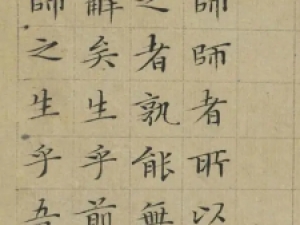 師師者所以
之者孰能無
解矣生乎前
師之生乎吾